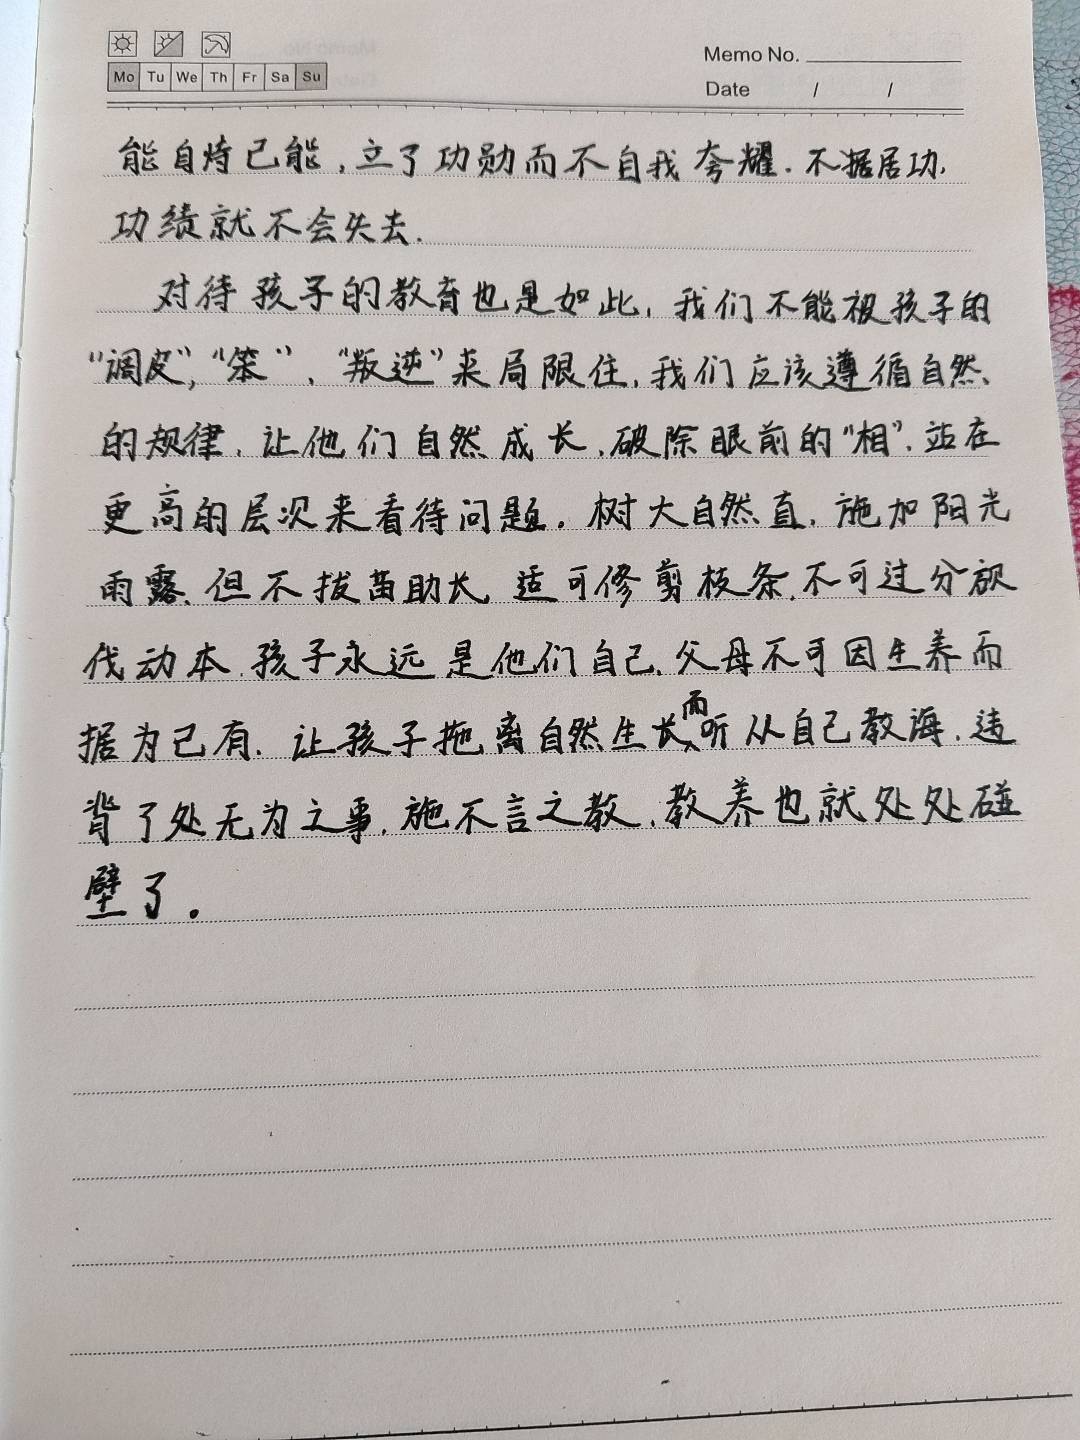 Memo No.
Mo Tu We Th Fr Sa Su
Date / /
能自恃己能,立了功勋而不自我夸耀.不据居功,
功绩就不会失去.
对待孩子的教育也是如此,我们不能被孩子的
"调皮","笨"、"叛逆"来局限住,我们应该遵循自然
的规律,让他们自然成长,破除眼前的"相",站在
更高的层次来看待问题。树大自然直,施加阳光
雨露,但不拔苗助长,适可修剪枝条,不可过分砍
伐动本,孩子永远是他们自己,父母不可因生养而
据为己有.让孩子拖离自然生长而听从自己教诲,违
背了处无为之事,施不言之教,教养也就处处碰
壁了。